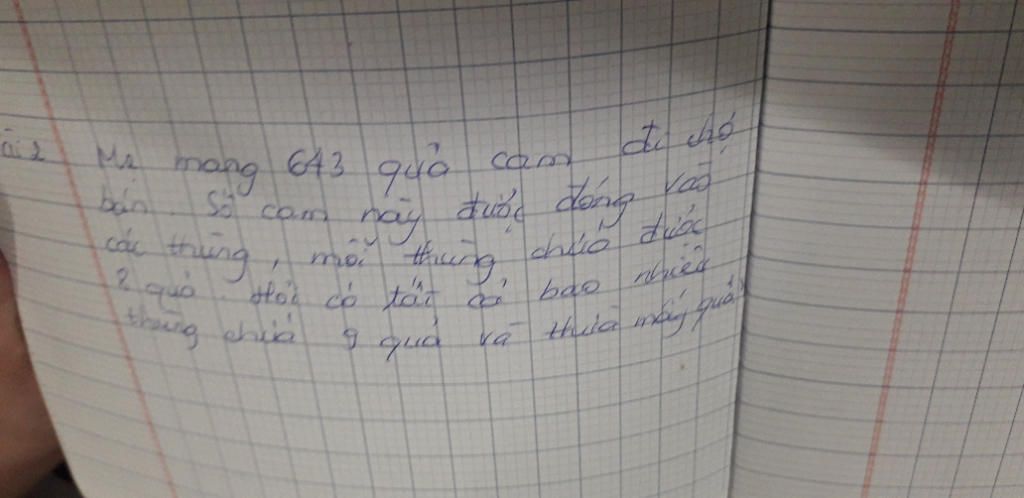 ài 2 Mẹ mang 643 quả cam đi chợ
bán. Số cam này được đóng vào
các thùng, mỗi thùng chứa được
quả. Hỏi có tất cả bao nhiêu
thùng chứa 9 quả và thừa mấy quả